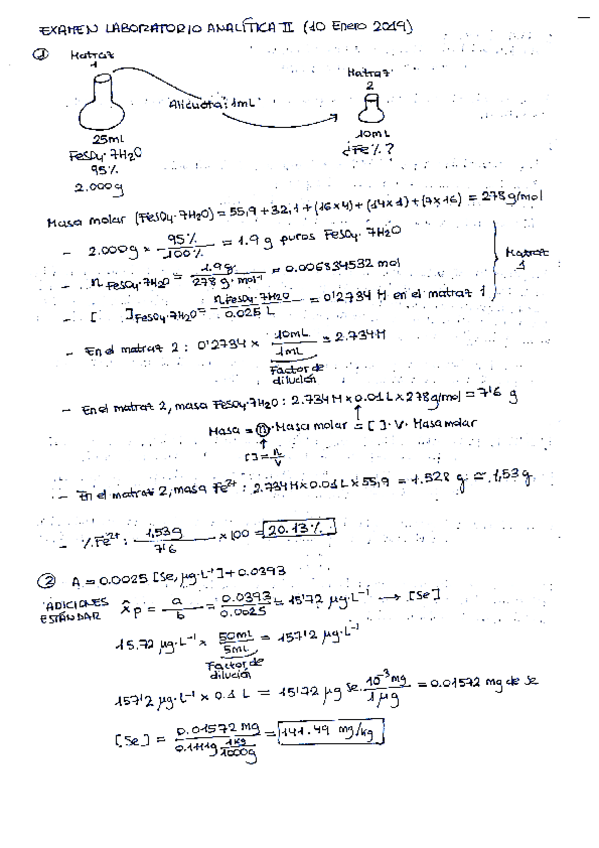 EXAMEN LABORATORIO ANALÍTICA II (10 Enero 2019)
① Matraz 1
Matraz 2
Alícuota: 1mL
25mL
FeSO4·7H2O
95%
2.000g
10mL
¿Fe%?
Masa molar (FeSO4·7H2O) = 55,9 + 32,1 + (16×4) + (14×1) + (7×16) = 278 g/mol
- 2.000g × 95% / 100% = 1.9 g puros FeSO4·7H2O
- n FeSO4·7H2O = 1.9g / 278 g·mol⁻¹ = 0.006834532 mol
- [ ]FeSO4·7H2O = nFeSO4·7H2O / 0.025 L = 0'2734 M en el matraz 1
Matraz 1
- En el matraz 2: 0'2734 × 10mL / 1mL = 2.734M
Factor de dilución
- En el matraz 2, masa FeSO4·7H2O: 2.734 M × 0.01 L × 278 g/mol = 7'6 g
Masa = n·Masa molar = [ ]·V·Masa molar
[ ] = n/V
- En el matraz 2, masa Fe²⁺: 2.734 M × 0.01 L × 55,9 = 1.528 g ≃ 1,53 g
- %Fe²⁺: 1,53g / 7'6 × 100 = 20.13%
② A = 0.0025 [Se, µg·L⁻¹] + 0.0393
ADICIONES ESTÁNDAR
x̂p = a/b = 0.0393 / 0.0025 = 15'72 µg·L⁻¹ → [Se]
15.72 µg·L⁻¹ × 50mL / 5mL = 157'2 µg·L⁻¹
Factor de dilución
157'2 µg·L⁻¹ × 0.1 L = 15'72 µg Se · 10⁻³mg / 1 µg = 0.01572 mg de Se
[Se] = 0.01572 mg / 0.1111g 1kg / 1000g = 141.49 mg/kg